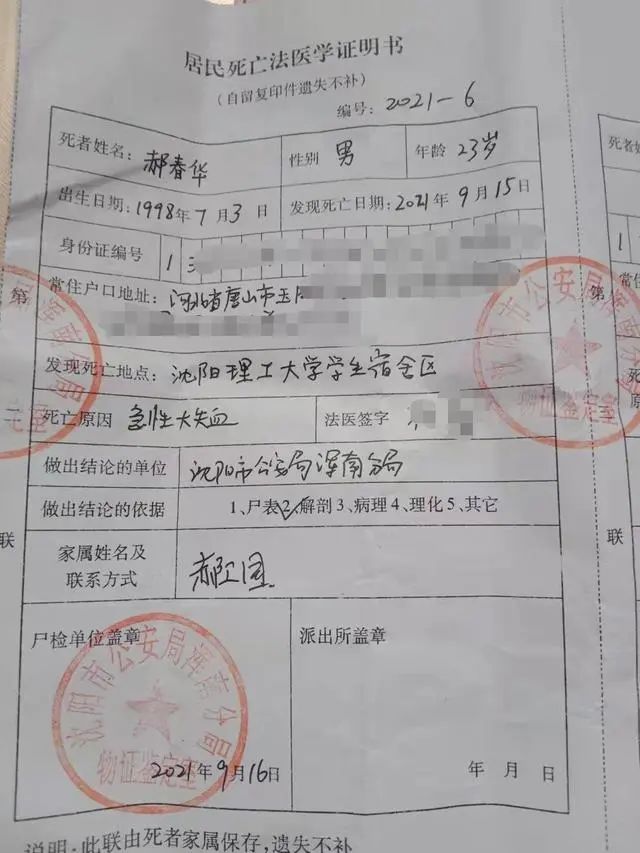 居民死亡法医学证明书
（自留复印件遗失不补）
编号：2021-6
死者姓名：郝春华 性别 男 年龄 23岁
出生日期：1998年7月3日 发现死亡日期：2021年9月15日
身份证编号 1
常住户口地址：河北省唐山市玉
发现死亡地点：沈阳理工大学学生宿舍区
死亡原因 急性大失血 法医签字
做出结论的单位 沈阳市公安局浑南分局
做出结论的依据 1、尸表2、解剖3、病理4、理化5、其它
家属姓名及
联系方式
郝
尸检单位盖章 派出所盖章
沈阳市公安局浑南分局
物证鉴定室
2021年9月16日 年 月 日
说明：此联由死者家属保存，遗失不补
第
二
联
南分局
定室
沈阳市公安局浑南分局
物证鉴定室
死者姓
出生日
身
1
常住
第
死
联